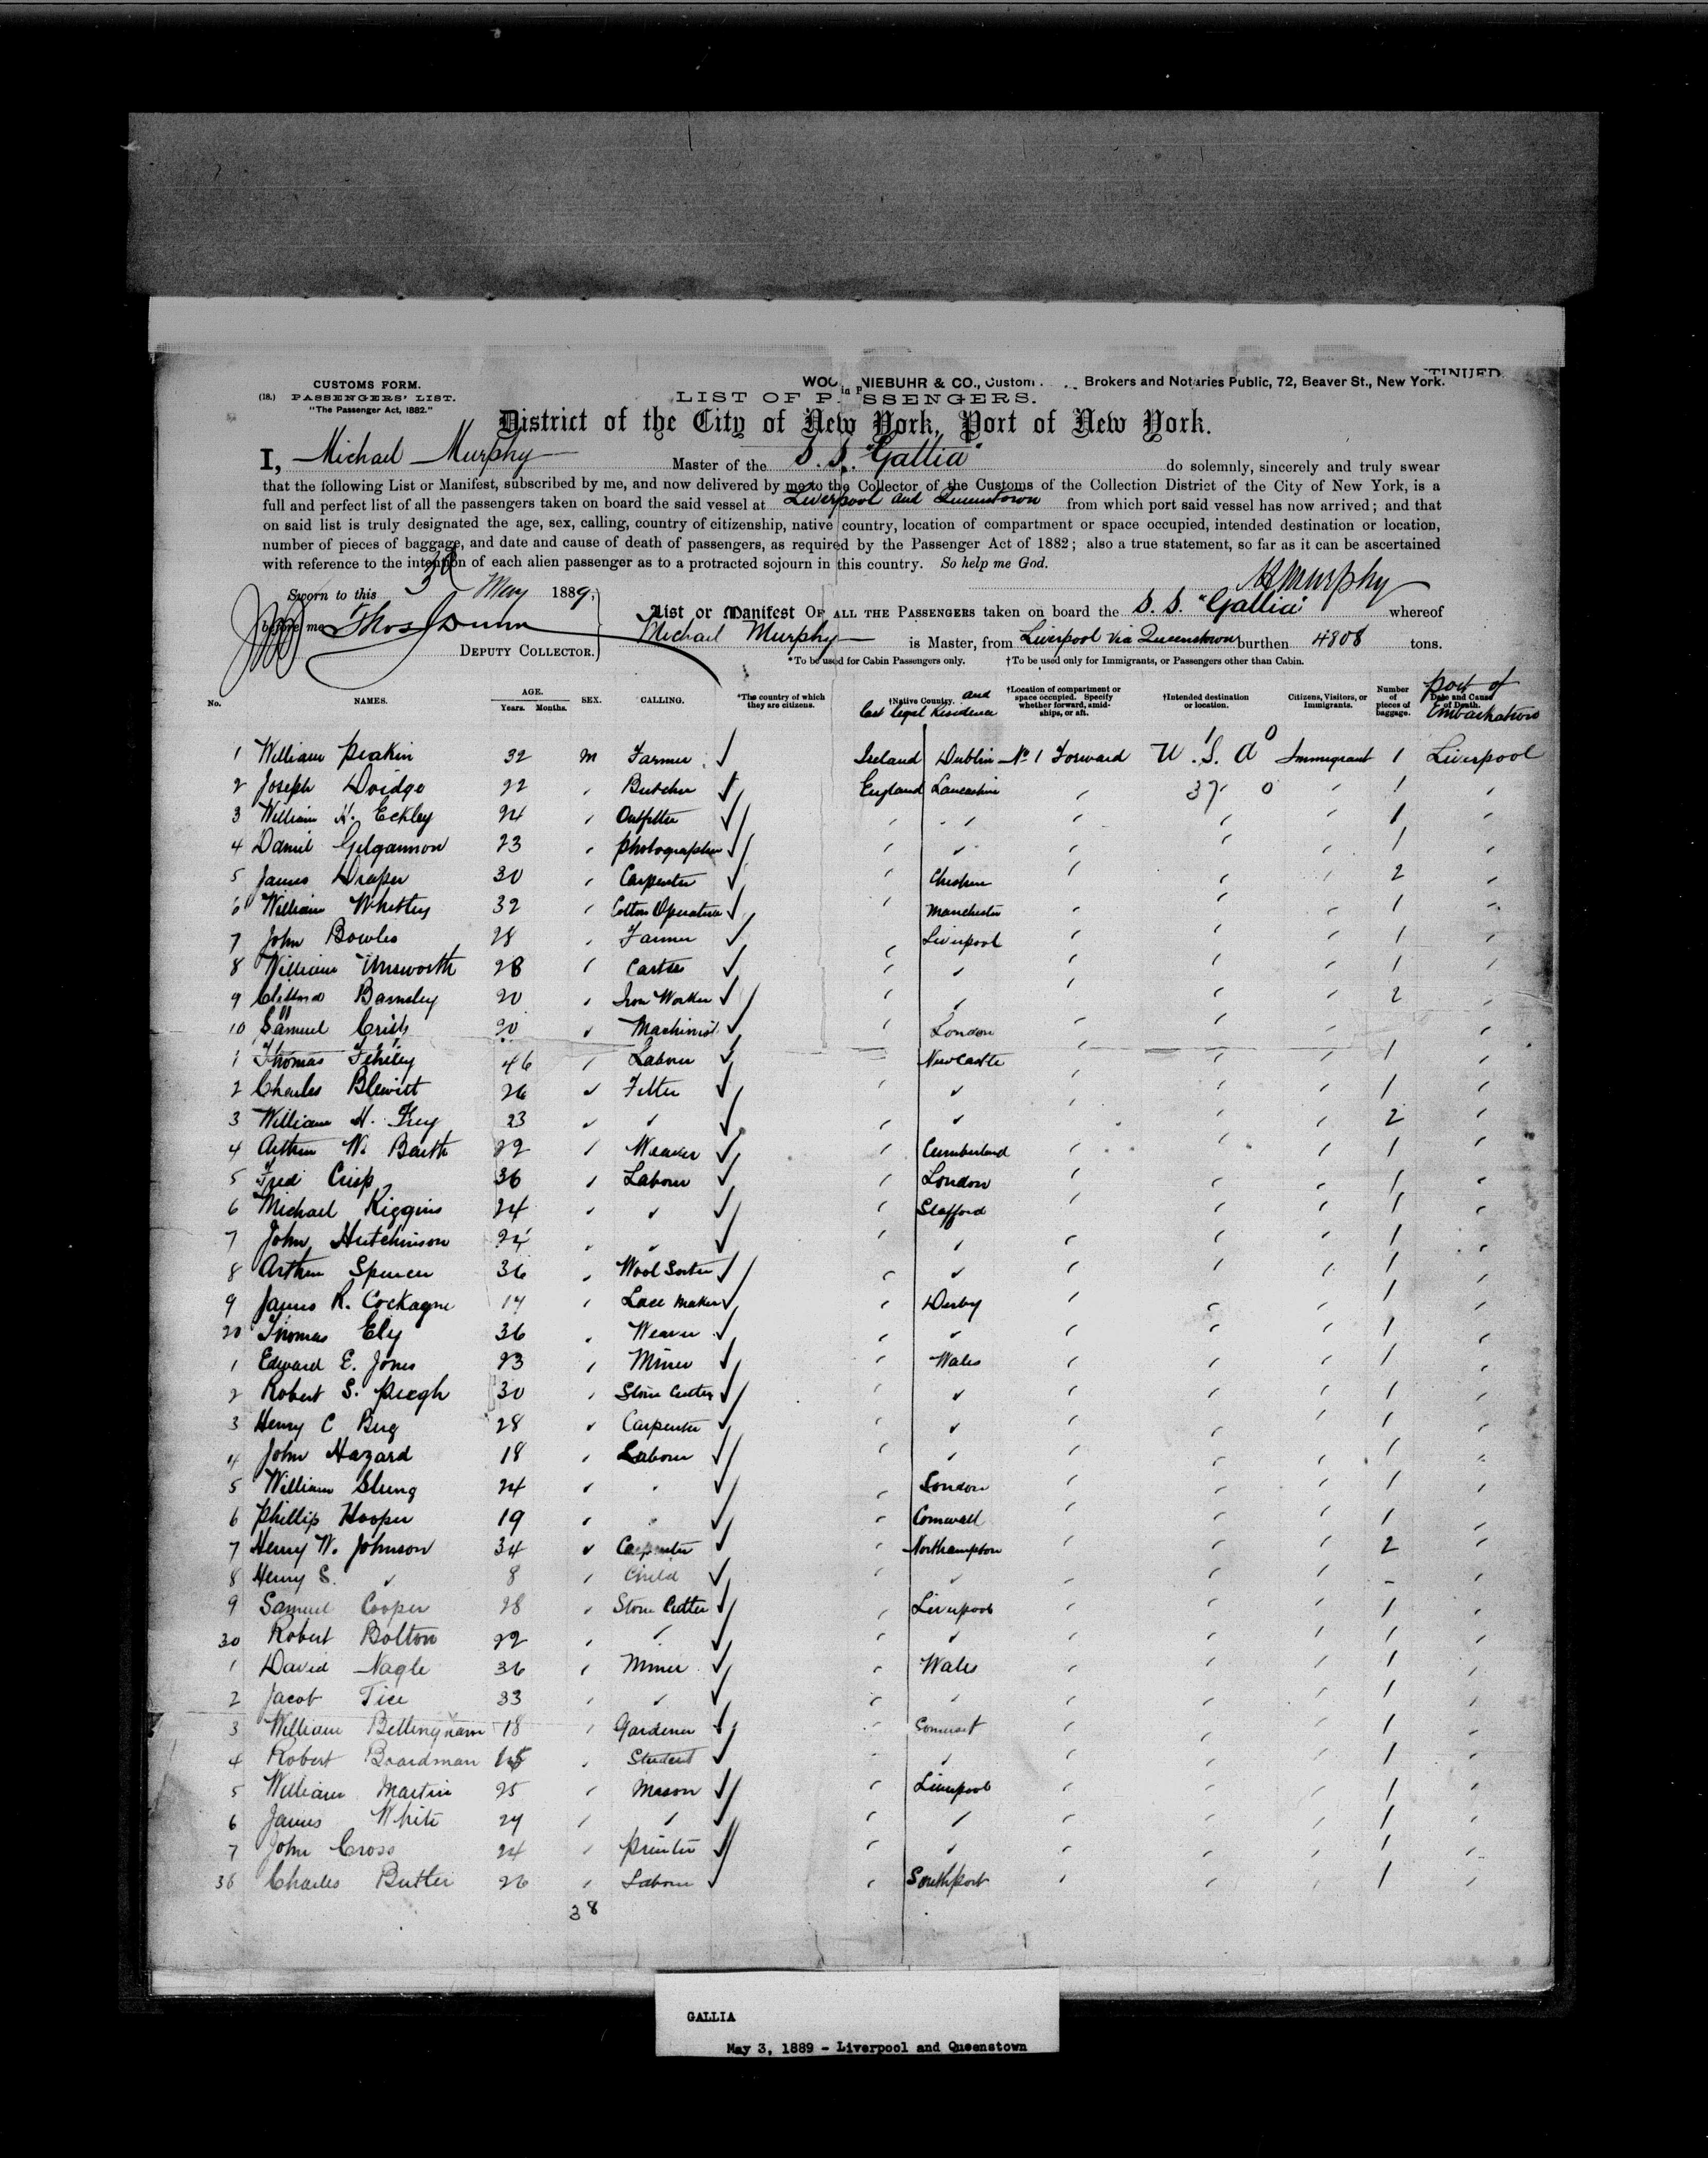 TINUED.
CUSTOMS FORM. WOO NIEBUHR & CO., Custom Brokers and Notaries Public, 72, Beaver St., New York.
(18.) PASSENGERS' LIST. LIST OF P SSENGERS.
"The Passenger Act, 1882."
District of the City of New York, Port of New York.
I, Michael Murphy Master of the S. S. "Gallia" do solemnly, sincerely and truly swear
that the following List or Manifest, subscribed by me, and now delivered by me to the Collector of the Customs of the Collection District of the City of New York, is a
full and perfect list of all the passengers taken on board the said vessel at Liverpool and Queenstown from which port said vessel has now arrived; and that
on said list is truly designated the age, sex, calling, country of citizenship, native country, location of compartment or space occupied, intended destination or location,
number of pieces of baggage, and date and cause of death of passengers, as required by the Passenger Act of 1882; also a true statement, so far as it can be ascertained
with reference to the intention of each alien passenger as to a protracted sojourn in this country. So help me God.
M Murphy
Sworn to this 3d May 1889,
before me Thos Dunn
DEPUTY COLLECTOR.
List or Manifest OF ALL THE PASSENGERS taken on board the S. S. "Gallia" whereof
Michael Murphy is Master, from Liverpool via Queenstown burthen 4808 tons.
*To be used for Cabin Passengers only. †To be used only for Immigrants, or Passengers other than Cabin.
No. NAMES. AGE. Years. Months. SEX. CALLING. *The country of which they are citizens. †Native Country. and last legal Residence †Location of compartment or space occupied. Specify whether forward, amidships, or aft. †Intended destination or location. Citizens, Visitors, or Immigrants. Number of pieces of baggage. Date and Cause of Death. port of Embarkation
1 William Peakin 32 m Farmer Ireland Dublin No 1 Forward U.S.A Immigrant 1 Liverpool
2 Joseph Doidge 22 Butcher England Lancashire 37 0 1
3 William H. Eckley 24 Outfitter 1
4 Daniel Gilgannon 23 photographer 1
5 James Draper 30 Carpenter Cheshire 2
6 William Whitley 32 Cotton Operative Manchester 1
7 John Bowles 28 Farmer Liverpool 1
8 William Unsworth 28 Carter 1
9 Barnsley 20 Iron Worker 2
10 Samuel 20 Machinist London
1 Thomas 46 Labour Newcastle 1
2 Charles Blewitt 26 Fitter 1
3 William H. 23 2
4 Arthur W. Barth 22 Weaver Cumberland 1
5 Fred Crisp 36 Labour London 1
6 Michael Higgins 24 Stafford 1
7 John Hutchinson 24 1
8 Arthur Spencer 36 Wool Sorter 1
9 James R. Cockayne 17 Lace Maker Derby 1
20 Thomas Ely 36 Weaver 1
1 Edward E. Jones 23 Miner Wales 1
2 Robert S. 30 Stone Cutter 1
3 Henry C 28 Carpenter 1
4 John Hazard 18 Labour 1
5 William 24 London 1
6 Phillip Hooper 19 Cornwall 1
7 Henry W. Johnson 34 Carpenter Northampton 2
8 Henry S. 8 Child
9 Samuel Cooper 28 Stone Cutter Liverpool 1
30 Robert Bolton 22 1
1 David Nagle 36 Miner Wales 1
2 Jacob Tice 33 1
3 William Bellingham 18 Gardener Somerset 1
4 Robert Boardman Student 1
5 William Martin 25 Mason Liverpool 1
6 James White 1
7 John Cross 24 printer 1
38 Charles Butler 26 Labour Southport 1
38
GALLIA
May 3, 1889 - Liverpool and Queenstown